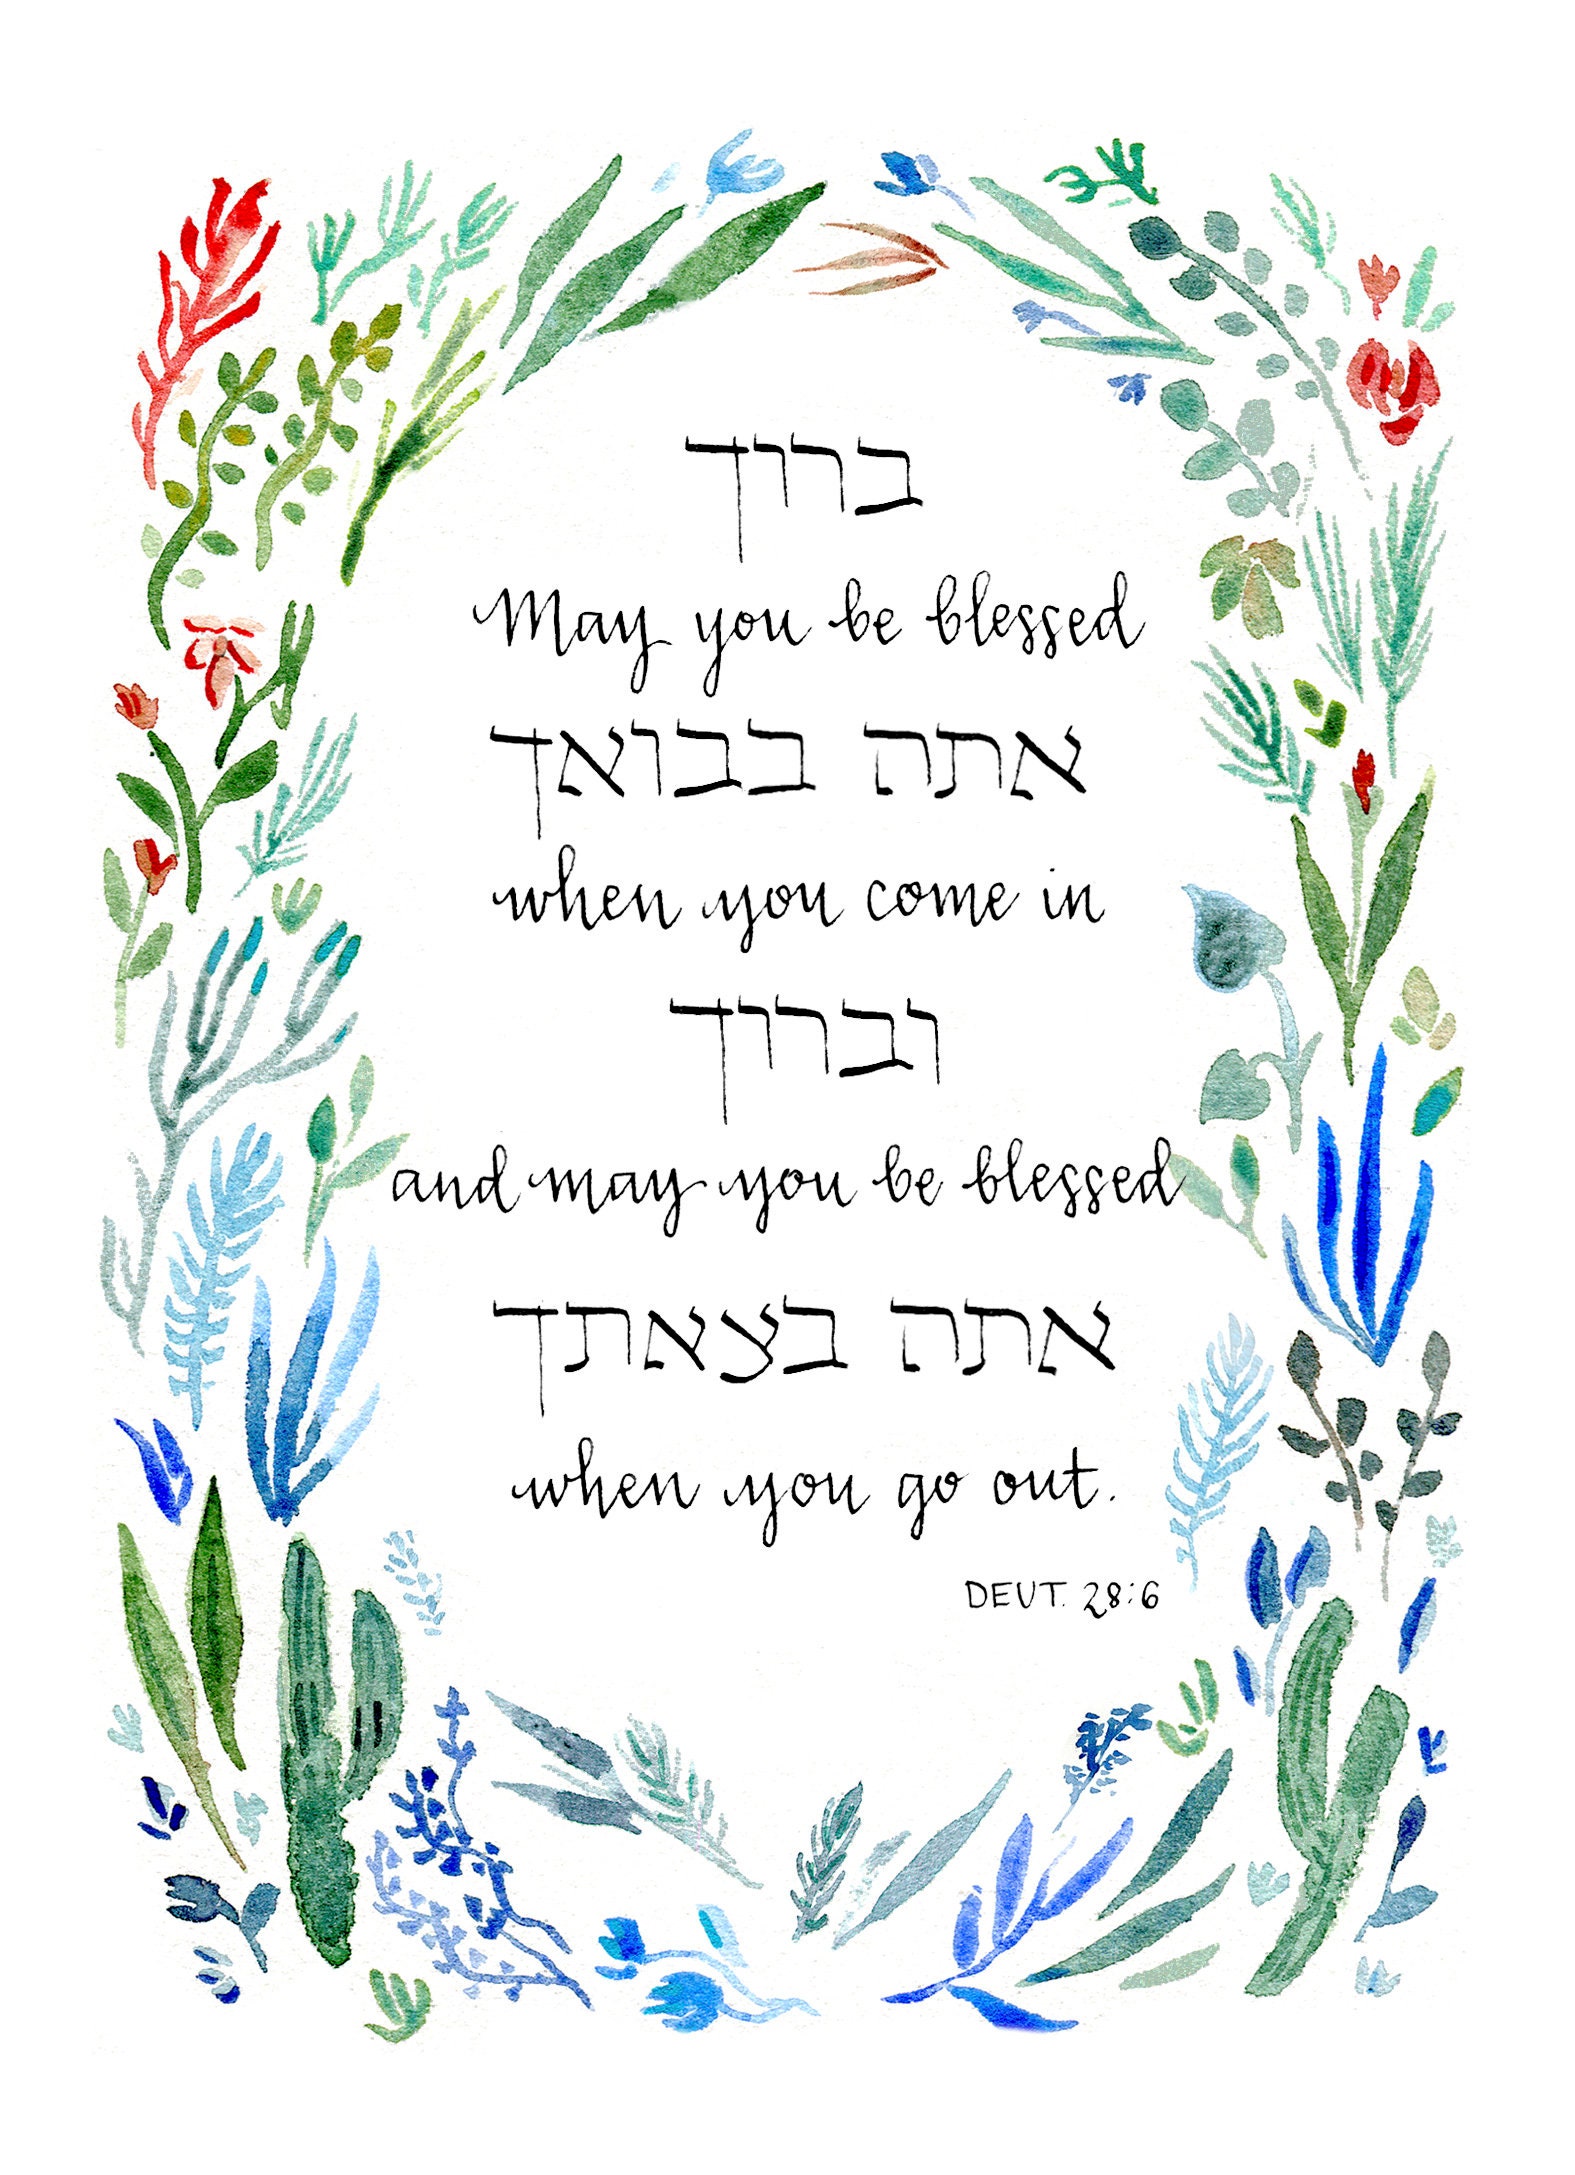 ברוך
May you be blessed
אתה בבואך
when you come in
וברוך
and may you be blessed
אתה בצאתך
when you go out.
DEUT. 28:6